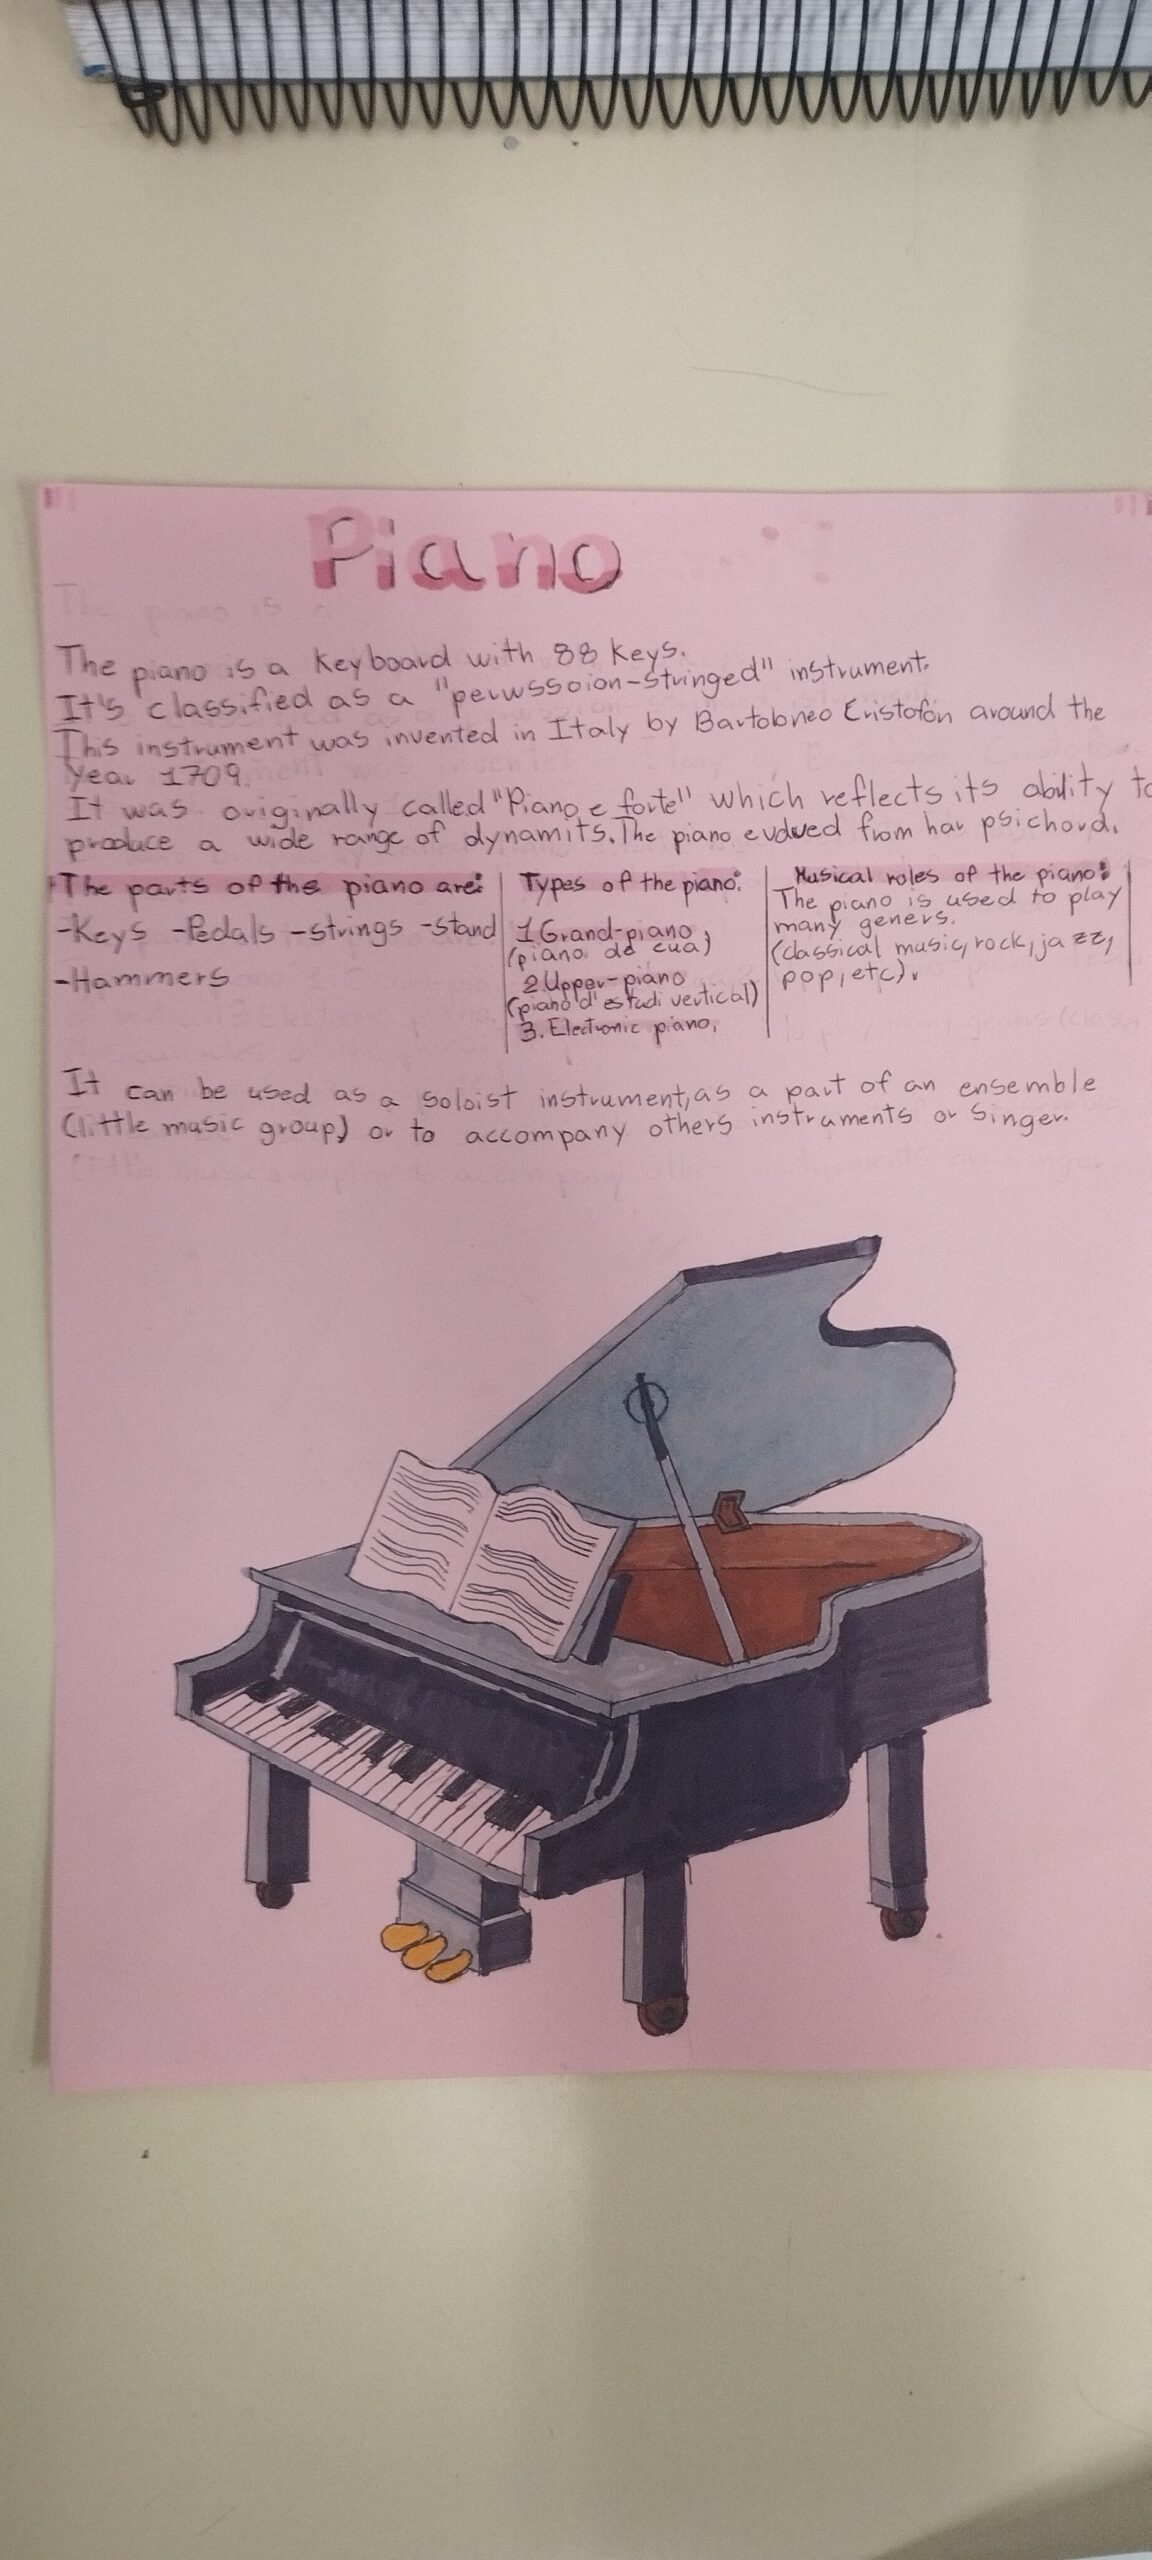 Piano
The piano is a keyboard with 88 keys.
It's classified as a "perwssoion-stringed" instrument.
This instrument was invented in Italy by Bartobneo Cristofon around the
year 1709.
It was originally called "Piano e forte" which reflects its ability to
produce a wide range of dynamits. The piano evolved from har psichord.
The parts of the piano are:
-Keys -Pedals -strings -stand
-Hammers
Types of the piano:
1 Grand-piano
(piano de cua)
2. Upper-piano
(piano d'estudi vertical)
3. Electronic piano.
Musical roles of the piano:
The piano is used to play
many geners.
(classical music, rock, jazz,
pop, etc).
It can be used as a soloist instrument, as a part of an ensemble
(little music group) or to accompany others instruments or singer.